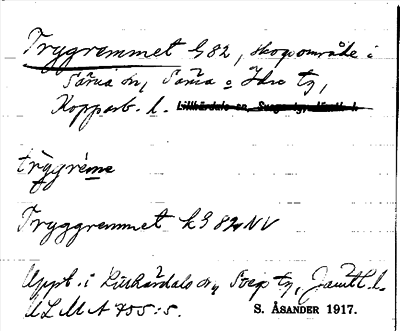 Trygremmet G82, skogsområde i
Särna sn, Särna o Idre tg,
Kopparb. l. Lillhärdals sn, Svegs tg, Jämtl. l.
tryggréme
Tryggremmet k G 82 NV
Uppt. i Lillhärdals sn, Svegs tg, Jämtl. l.
ULMA 705:5. S. ÅSANDER 1917.